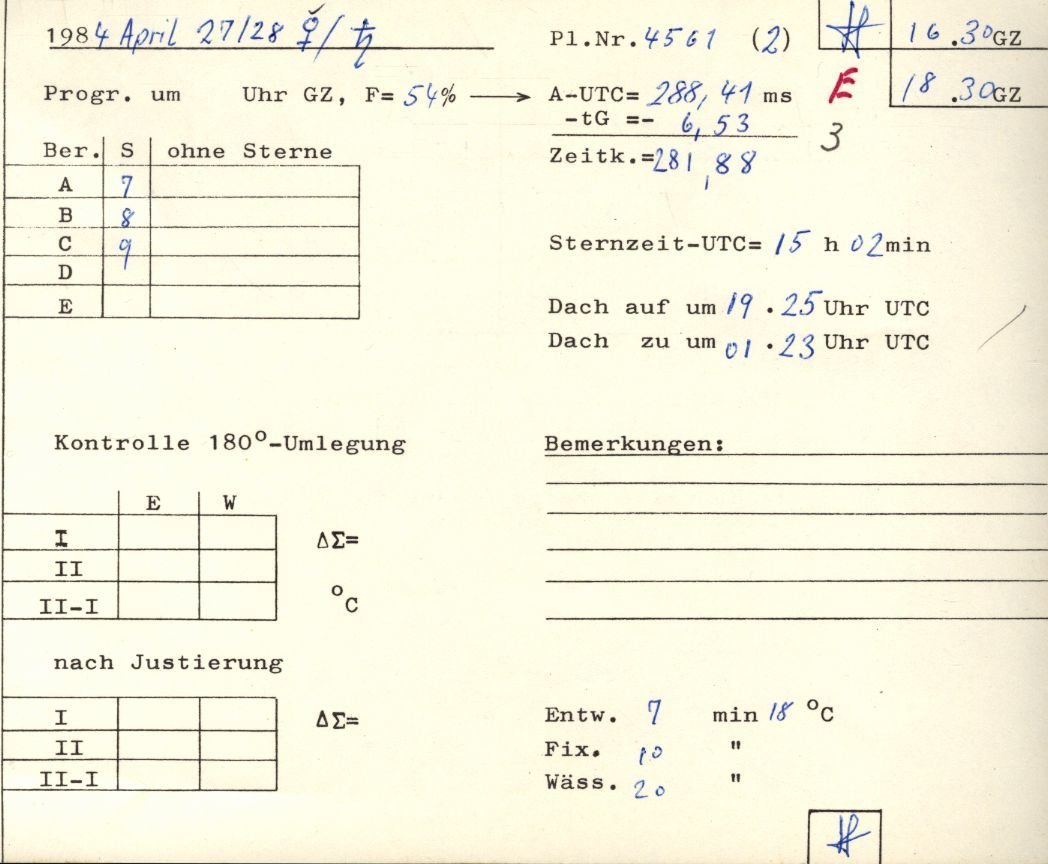 1984 April 27/28 ♀/♄ Pl.Nr.4561 (2) 16.30GZ
Progr. um Uhr GZ, F= 54% → A-UTC= 288,41 ms E 18.30GZ
-tG =- 6,53 3
Ber. S ohne Sterne Zeitk.=281,88
A 7
B 8
C 9
D
E
Sternzeit-UTC= 15 h 02min
Dach auf um 19.25 Uhr UTC
Dach zu um 01.23 Uhr UTC
Kontrolle 180°-Umlegung
E W
I ΔΣ=
II
II-I °C
nach Justierung
I ΔΣ=
II
II-I
Bemerkungen:
Entw. 7 min 18 °C
Fix. 10 "
Wäss. 20 "